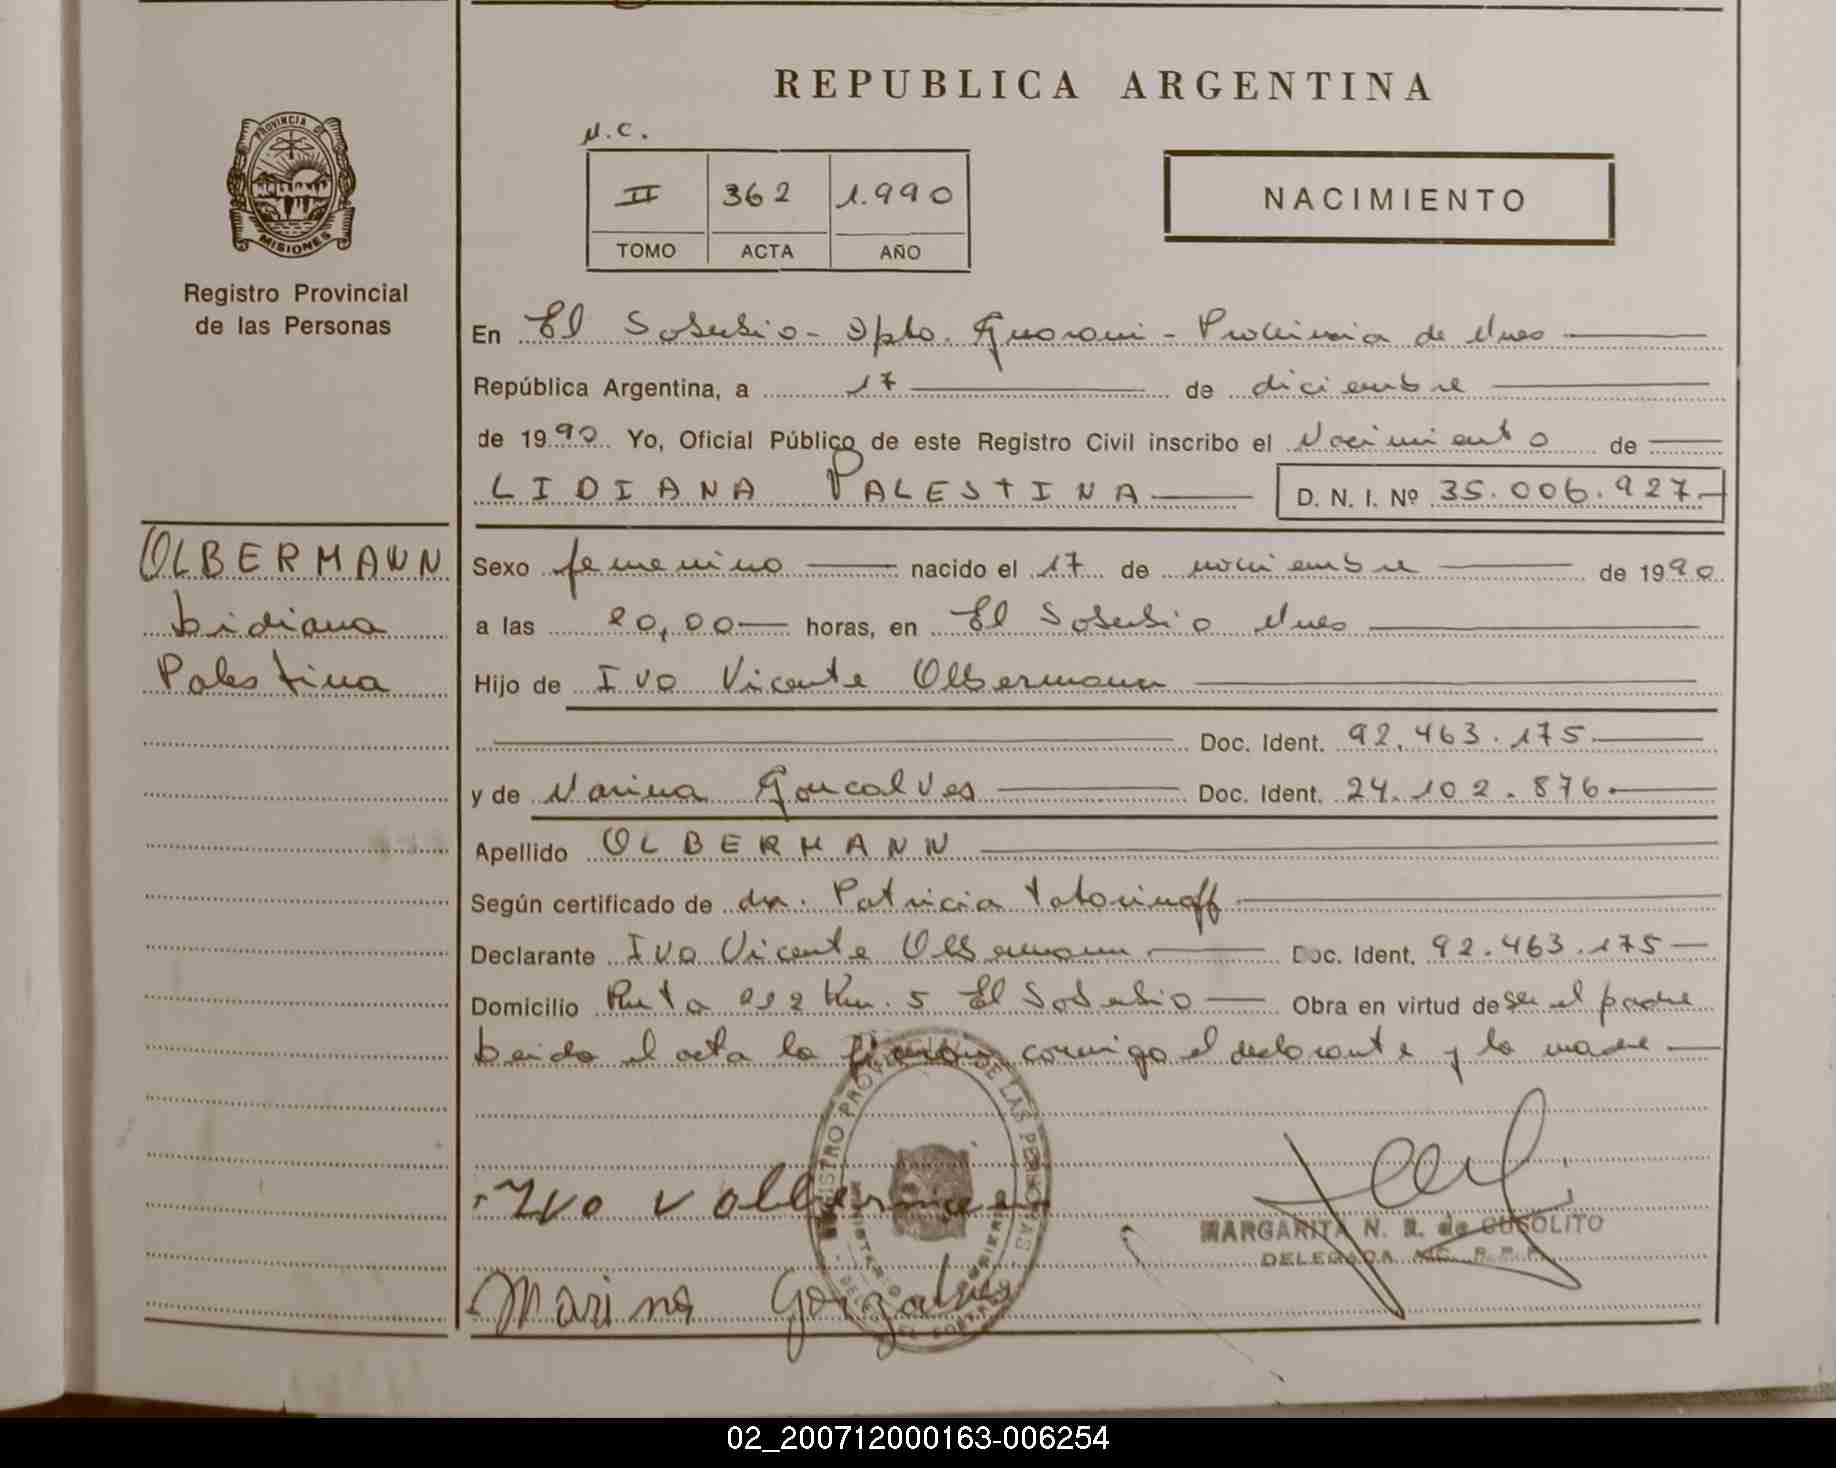 REPUBLICA ARGENTINA
N.C.
II 362 1.990
TOMO ACTA AÑO
NACIMIENTO
PROVINCIA DE
MISIONES
Registro Provincial
de las Personas
En El Soberbio - Dpto. Guarani - Provincia de Mnes
República Argentina, a 17 de diciembre
de 1990 Yo, Oficial Público de este Registro Civil inscribo el Nacimiento de
LIDIANA PALESTINA D. N. I. Nº 35.006.927
OLBERMANN
Lidiana
Palestina
Sexo femenino nacido el 17 de noviembre de 1990
a las 20,00 horas, en El Soberbio Mnes
Hijo de Ivo Vicente Olbermann
Doc. Ident. 92.463.175
y de Marina Goncalves Doc. Ident. 24.102.876
Apellido OLBERMANN
Según certificado de dra. Patricia
Declarante Ivo Vicente Olbermann Doc. Ident. 92.463.175
Domicilio Ruta 212 Km. 5 El Soberbio Obra en virtud de ser el padre
Leida el acta la firman conmigo el declarante y la madre
REGISTRO PROVINCIAL DE LAS PERSONAS
Ivo v olberman
MARGARITA N. R. de CUSOLITO
DELEGADA
Marina Gonzalves
02_200712000163-006254